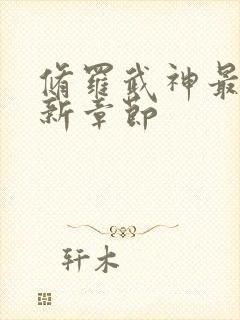 脩羅武神最
新章節
轩木